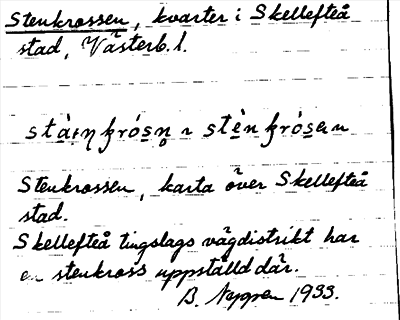 Stenkrossen, kvarter i Skellefteå
stad, Västerb. l.
Stenkrossen, karta över Skellefteå
stad.
Skellefteå tingslags vägdistrikt har
en stenkross uppställd där.
B. 1933.